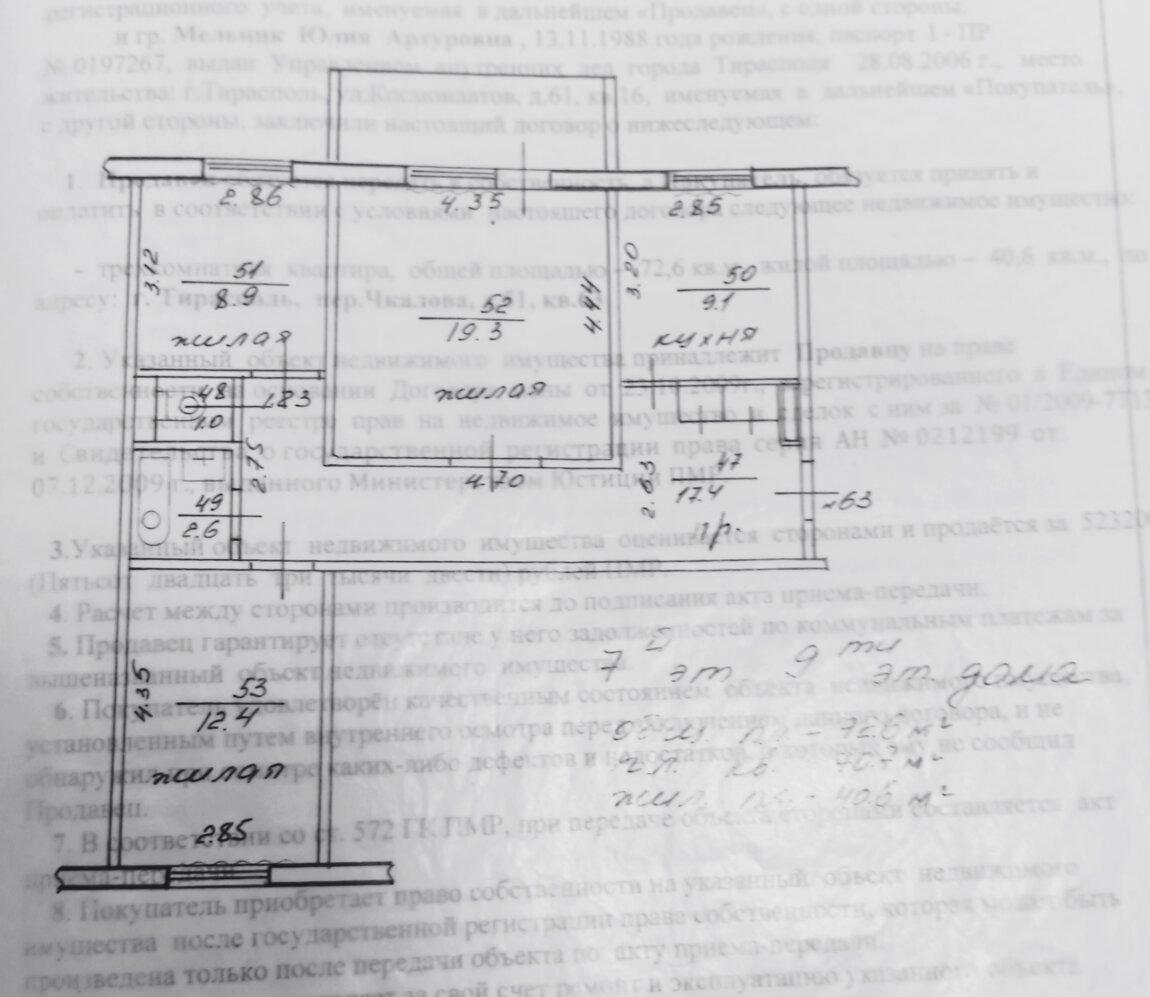 регистрационного учета, именуемая в дальнейшем «Продавец», с одной стороны,
и гр. Мельник Юлия Артуровна , 13.11.1988 года рождения, паспорт 1 - ПР
№ 0197267, выдан Управлением внутренних дел города Тирасполя 28.08.2006 г., место
жительства: г.Тирасполь, ул.Космонавтов, д.61, кв.16, именуемая в дальнейшем «Покупатель»,
с другой стороны, заключили настоящий договор о нижеследующем:
1. Продавец обязуется передать в собственность, а Покупатель, обязуется принять и
оплатить в соответствии с условиями настоящего договора следующее недвижимое имущество:
- трехкомнатная квартира, общей площадью - 72,6 кв.м., жилой площадью - 40,6 кв.м., по
адресу: г. Тирасполь, пер.Чкалова, 51, кв.63
2. Указанный объект недвижимого имущества принадлежит Продавцу на праве
собственности на основании Договора от 23.10.2009г., зарегистрированного в Едином
государственном реестре прав на недвижимое имущество и сделок с ним за № 01/2009-7713
и Свидетельства о государственной регистрации права серия АН № 0212199 от
07.12.2009 г., выданного Министерством Юстиции ПМР.
3.Указанный объект недвижимого имущества оценивается сторонами и продаётся за 52320
(Пятьсот двадцать три тысячи двести) рублей ПМР.
4. Расчет между сторонами производится до подписания акта приема-передачи.
5. Продавец гарантирует отсутствие у него задолженностей по коммунальным платежам за
вышеназванный объект недвижимого имущества.
6. Покупатель удовлетворён качественным состоянием объекта недвижимого имущества,
установленным путем внутреннего осмотра перед заключением данного договора, и не
обнаружил при осмотре каких-либо дефектов и недостатков, о которых ему не сообщил
Продавец.
7. В соответствии со ст. 572 ГК ПМР, при передаче объекта сторонами составляется акт
приема-передачи.
8. Покупатель приобретает право собственности на указанный объект недвижимого
имущества после государственной регистрации права собственности, которая может быть
произведена только после передачи объекта по акту приема-передачи.
за свой счет ремонт и эксплуатацию указанного объекта
2.86
4.35
2.85
3.12
51
8.9
жилая
52
19.3
4.44
жилая
3.20
50
9.1
кухня
48
1.0
1.83
2.75
49
2.6
4.70
2.63
47
17.4
пр.
63
4.35
53
12.4
жилая
2.85
7й эт 9ти эт дома
общ. пл. - 72.6 м²
70.7 м²
жил. пл. - 40.6 м²